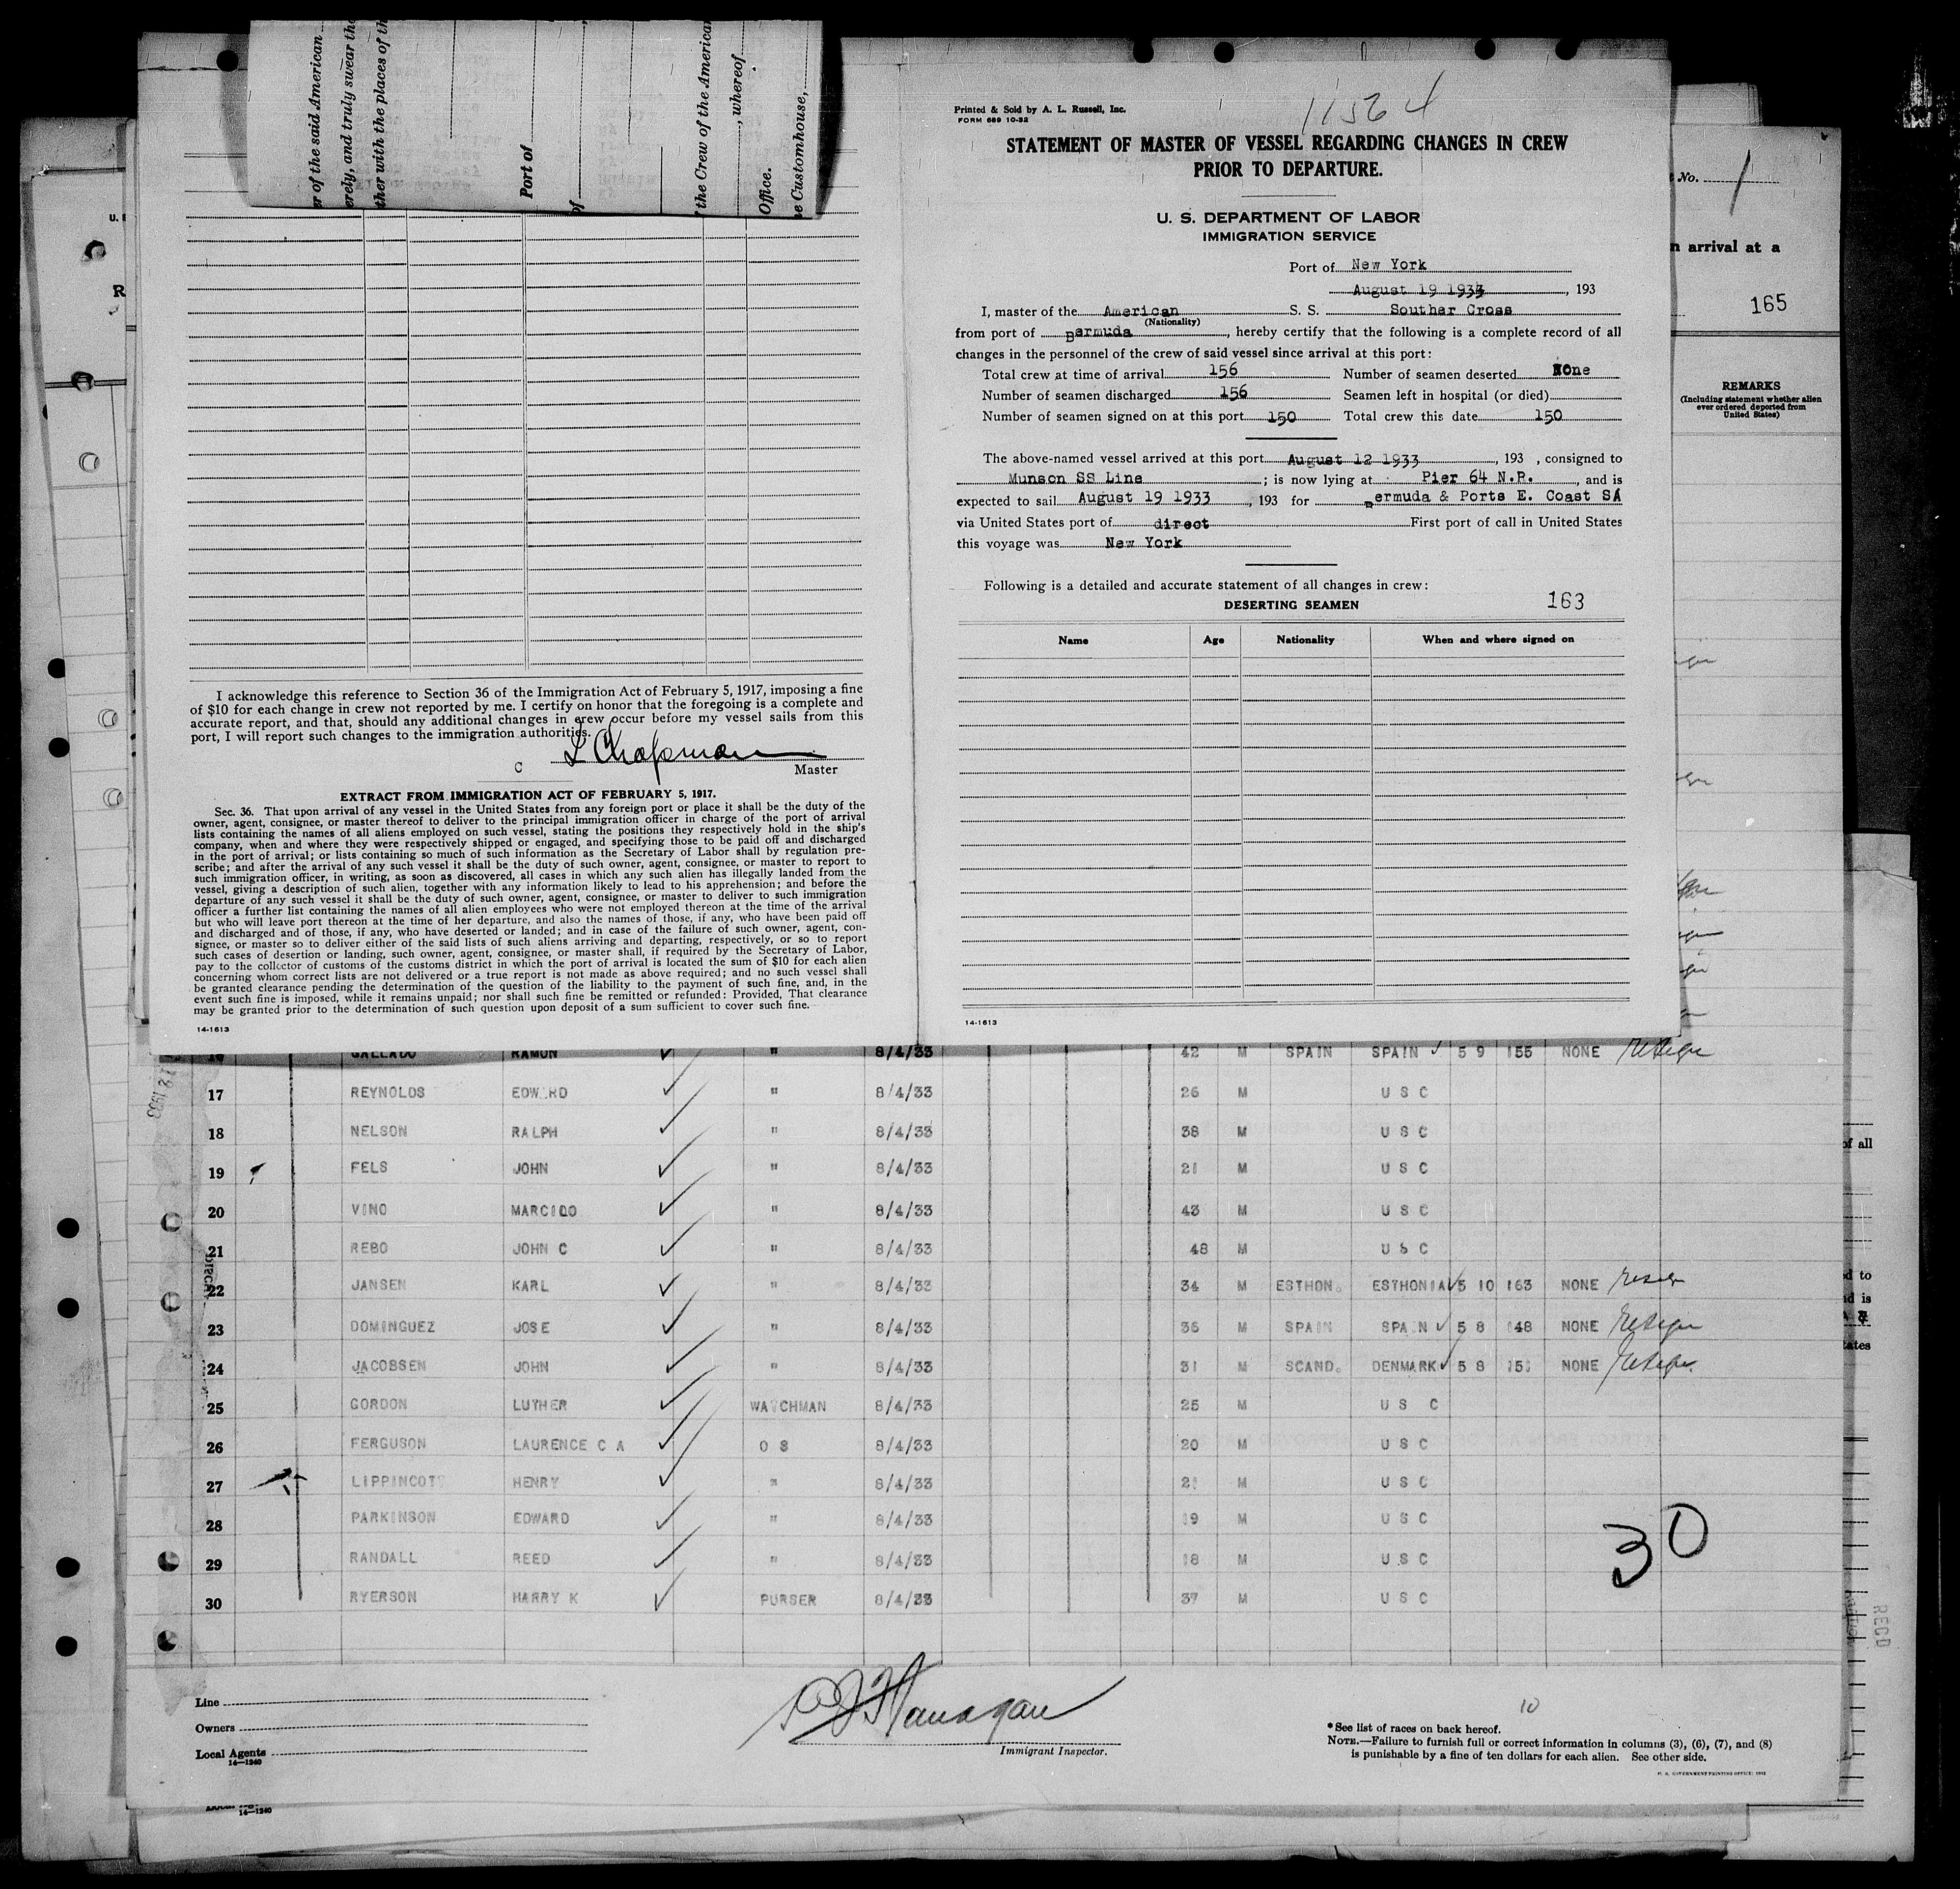 er of the said American
erely, and truly swear tha
ther with the places of th
Port of
of
the Crew of the American
, whereof
Office.
e Customhouse,
I acknowledge this reference to Section 36 of the Immigration Act of February 5, 1917, imposing a fine
of $10 for each change in crew not reported by me. I certify on honor that the foregoing is a complete and
accurate report, and that, should any additional changes in crew occur before my vessel sails from this
port, I will report such changes to the immigration authorities.
L Chapman
C
Master
EXTRACT FROM IMMIGRATION ACT OF FEBRUARY 5, 1917.
Sec. 36. That upon arrival of any vessel in the United States from any foreign port or place it shall be the duty of the
owner, agent, consignee, or master thereof to deliver to the principal immigration officer in charge of the port of arrival
lists containing the names of all aliens employed on such vessel, stating the positions they respectively hold in the ship's
company, when and where they were respectively shipped or engaged, and specifying those to be paid off and discharged
in the port of arrival; or lists containing so much of such information as the Secretary of Labor shall by regulation pre-
scribe; and after the arrival of any such vessel it shall be the duty of such owner, agent, consignee, or master to report to
such immigration officer, in writing, as soon as discovered, all cases in which any such alien has illegally landed from the
vessel, giving a description of such alien, together with any information likely to lead to his apprehension; and before the
departure of any such vessel it shall be the duty of such owner, agent, consignee, or master to deliver to such immigration
officer a further list containing the names of all alien employees who were not employed thereon at the time of the arrival
but who will leave port thereon at the time of her departure, and also the names of those, if any, who have been paid off
and discharged and of those, if any, who have deserted or landed; and in case of the failure of such owner, agent, con-
signee, or master so to deliver either of the said lists of such aliens arriving and departing, respectively, or so to report
such cases of desertion or landing, such owner, agent, consignee, or master shall, if required by the Secretary of Labor,
pay to the collector of customs of the customs district in which the port of arrival is located the sum of $10 for each alien
concerning whom correct lists are not delivered or a true report is not made as above required; and no such vessel shall
be granted clearance pending the determination of the question of the liability to the payment of such fine, and, in the
event such fine is imposed, while it remains unpaid; nor shall such fine be remitted or refunded: Provided, That clearance
may be granted prior to the determination of such question upon deposit of a sum sufficient to cover such fine.
14-1613
Printed & Sold by A. L. Russell, Inc.
FORM 689 10-32
11564
STATEMENT OF MASTER OF VESSEL REGARDING CHANGES IN CREW
PRIOR TO DEPARTURE.
U. S. DEPARTMENT OF LABOR
IMMIGRATION SERVICE
Port of New York
August 19 1933, 193
I, master of the American S. S. Souther Cross
(Nationality)
from port of Bermuda, hereby certify that the following is a complete record of all
changes in the personnel of the crew of said vessel since arrival at this port:
Total crew at time of arrival 156 Number of seamen deserted None
Number of seamen discharged 156 Seamen left in hospital (or died)
Number of seamen signed on at this port 150 Total crew this date 150
The above-named vessel arrived at this port August 12 1933, 193 , consigned to
Munson SS Line ; is now lying at Pier 64 N.R. , and is
expected to sail August 19 1933 , 193 for Bermuda & Ports E. Coast SA
via United States port of direct First port of call in United States
this voyage was New York
Following is a detailed and accurate statement of all changes in crew:
DESERTING SEAMEN 163
Name Age Nationality When and where signed on
14-1613
No. 1
n arrival at a
165
REMARKS
(Including statement whether alien
ever ordered deported from
United States)
16 GALLADO RAMON " 8/4/33 42 M SPAIN SPAIN 5 9 155 NONE
17 REYNOLDS EDW.RD " 8/4/33 26 M U S C
18 NELSON RALPH " 8/4/33 38 M U S C
19 FELS JOHN " 8/4/33 21 M U S C
20 VINO MARCIDO " 8/4/33 43 M U S C
21 REBO JOHN C " 8/4/33 48 M U S C
22 JANSEN KARL " 8/4/33 34 M ESTHON. ESTHONIA 5 10 163 NONE
23 DOMINGUEZ JOSE " 8/4/33 36 M SPAIN SPAIN 5 8 148 NONE
24 JACOBSEN JOHN " 8/4/33 31 M SCAND. DENMARK 5 8 151 NONE
25 GORDON LUTHER WATCHMAN 8/4/33 25 M U S C
26 FERGUSON LAURENCE C A O S 8/4/33 20 M U S C
27 LIPPINCOTT HENRY " 8/4/33 21 M U S C
28 PARKINSON EDWARD " 8/4/33 19 M U S C
29 RANDALL REED " 8/4/33 18 M U S C
30 RYERSON HARRY K PURSER 8/4/33 37 M U S C
30
Line
Owners
Local Agents
14—1240
Flanagan
Immigrant Inspector.
10
*See list of races on back hereof.
NOTE.—Failure to furnish full or correct information in columns (3), (6), (7), and (8)
is punishable by a fine of ten dollars for each alien. See other side.
14—1240
of all
RECD